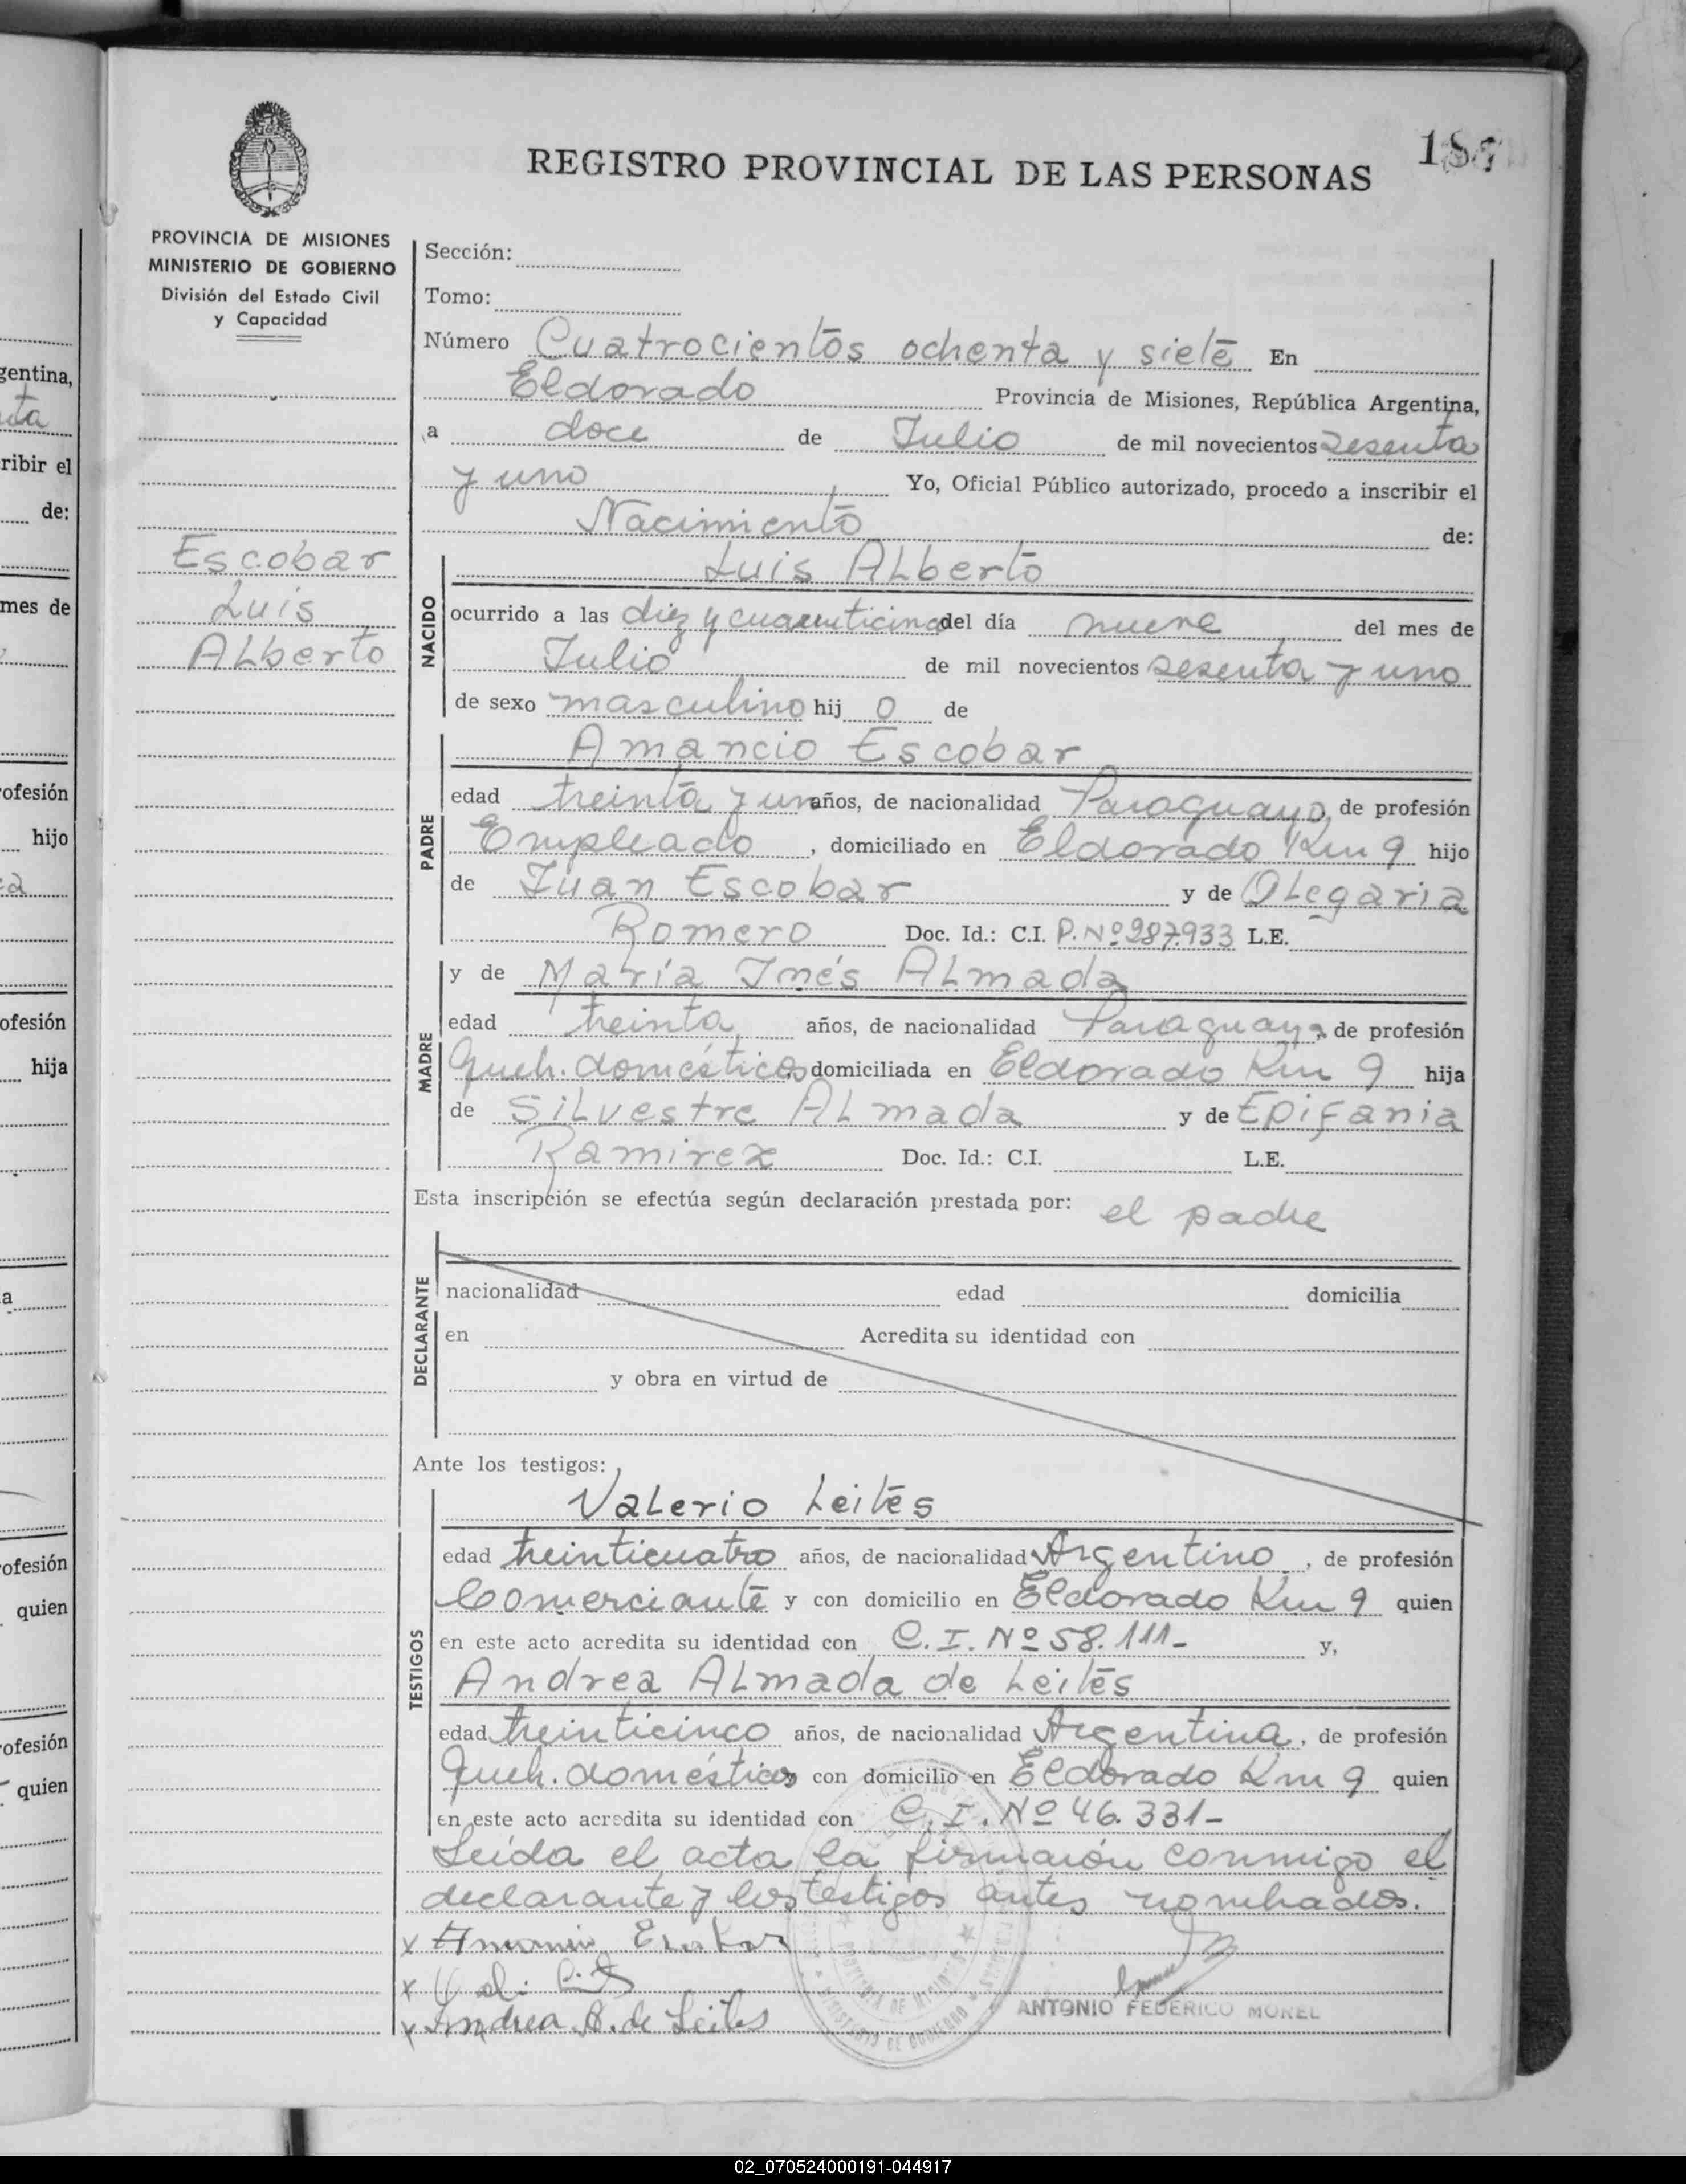 187
REGISTRO PROVINCIAL DE LAS PERSONAS
PROVINCIA DE MISIONES
MINISTERIO DE GOBIERNO
División del Estado Civil
y Capacidad
Escobar
Luis
ALberto
Sección:
Tomo:
Número Cuatrocientos ochenta y siete En
Eldorado Provincia de Misiones, República Argentina,
a doce de Julio de mil novecientos sesenta
y uno Yo, Oficial Público autorizado, procedo a inscribir el
Nacimiento de:
Luis ALberto
NACIDO
ocurrido a las diez y cuarenticinco del día nueve del mes de
Julio de mil novecientos sesenta y uno
de sexo masculino hij o de
Amancio Escobar
PADRE
edad treinta y un años, de nacionalidad Paraguayo, de profesión
Empleado, domiciliado en Eldorado Km 9 hijo
de Juan Escobar y de OLegaria
Romero Doc. Id.: C.I. P. Nº 287.933 L.E.
MADRE
y de María Inés ALmada
edad treinta años, de nacionalidad Paraguaya, de profesión
Queh. domésticos domiciliada en Eldorado Km 9 hija
de SiLvestre ALmada y de Epifania
Ramirez Doc. Id.: C.I. L.E.
Esta inscripción se efectúa según declaración prestada por: el padre
DECLARANTE
nacionalidad edad domicilia
en Acredita su identidad con
y obra en virtud de
Ante los testigos:
TESTIGOS
VaLerio Leites
edad treinticuatro años, de nacionalidad Argentino, de profesión
Comerciante y con domicilio en Eldorado Km 9 quien
en este acto acredita su identidad con C. I. Nº 58.111- y,
Andrea ALmada de Leites
edad treinticinco años, de nacionalidad Argentina, de profesión
Queh. domésticos con domicilio en Eldorado Km 9 quien
en este acto acredita su identidad con C. I. Nº 46.331-
Leída el acta la firmaron conmigo el
declarante y los testigos antes nombrados.
x Amancio Escobar
x
x Andrea A. de Leites
ANTONIO FEDERICO MOREL
gentina,
ribir el
de:
mes de
ofesión
hijo
ofesión
hija
a
ofesión
quien
ofesión
quien
02_070524000191-044917